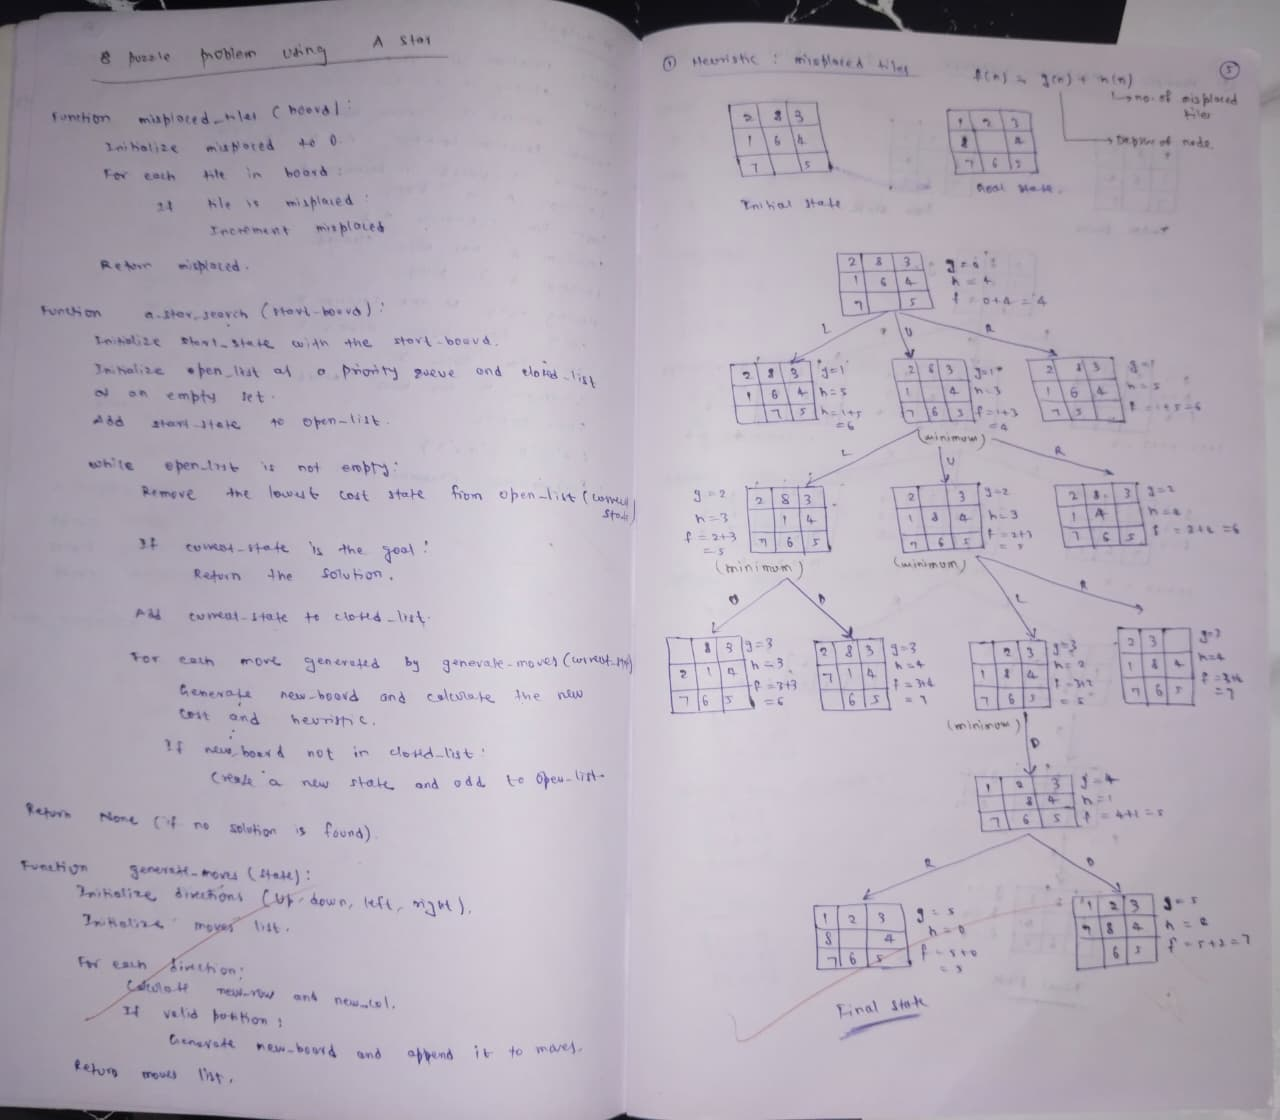 8 puzzle problem using A star
Function misplaced_tiles (board):
Initialize misplaced to 0.
For each tile in board:
If tile is misplaced:
Increment misplaced
Return misplaced.
Function a-star_search (start-board):
Initialize start_state with the start-board.
Initialize open_list as a priority queue and closed_list
as an empty set.
Add start_state to open-list.
While open_list is not empty:
Remove the lowest cost state from open-list (current
state)
If current-state is the goal:
Return the solution.
Add current-state to closed-list.
For each move generated by generate-moves (current-state)
Generate new-board and calculate the new
cost and heuristic.
If new_board not in closed-list:
Create a new state and add to open-list.
Return None (if no solution is found).
Function generate-moves (state):
Initialize directions (up, down, left, right).
Initialize moves list.
For each direction:
Calculate new-row and new_col.
If valid position:
Generate new-board and append it to moves.
Return moves list.
5
① Heuristic : misplaced tiles
f(n) = g(n) + h(n)
→ no. of misplaced
tiles
→ Depth of node.
2 8 3
1 6 4
7 5
Initial state
1 2 3
8 4
7 6 5
Goal state.
2 8 3 g = 0
1 6 4 h = 4
7 5 f = 0+4 = 4
L U R
2 8 3 g=1
1 6 4 h=5
7 5 h=1+5
=6
2 8 3 g=1
1 4 h=3
7 6 5 f=1+3
=4
(minimum)
2 8 3 g=1
1 6 4 h=5
7 5 f=1+5=6
L U R
g=2
h=3
f=2+3
=5
2 8 3
1 4
7 6 5
(minimum)
2 3 g=2
1 8 4 h=3
7 6 5 f=2+3
=5
(minimum)
2 8 3 g=2
1 4 h=4
7 6 5 f=2+4=6
U D L R
8 3 g=3
2 1 4 h=3
7 6 5 f=3+3
=6
2 8 3 g=3
7 1 4 h=4
6 5 f=3+4
=7
2 3 g=3
1 8 4 h=2
7 6 5 f=3+2
=5
(minimum)
2 3 g=3
1 8 4 h=4
7 6 5 f=3+4
=7
D
1 2 3 g=4
8 4 h=1
7 6 5 f=4+1=5
R D
1 2 3 g=5
8 4 h=0
7 6 5 f=5+0
=5
Final state
1 2 3 g=5
7 8 4 h=2
6 5 f=5+2=7